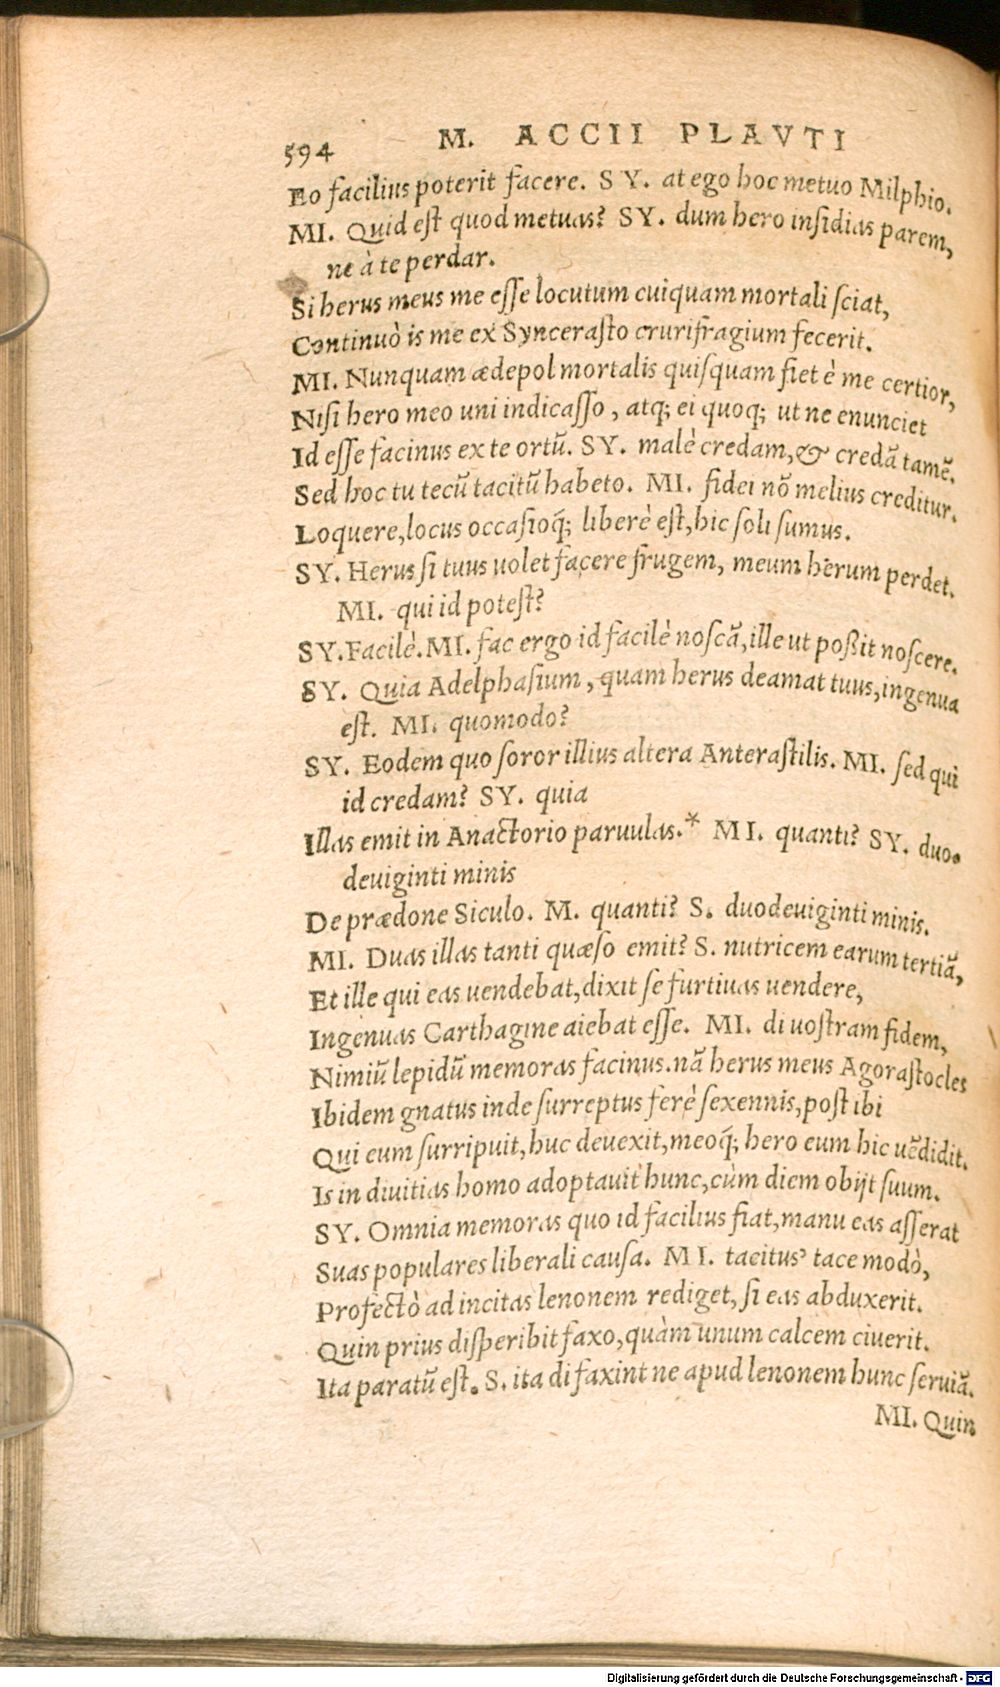 594 M. ACCII PLAVTI
Eo facilius poterit facere. SY. at ego hoc metuo Milphio.
MI. Quid eſt quod metuas? SY. dum hero inſidias parem,
ne à te perdar.
Si herus meus me eſſe locutum cuiquam mortali ſciat,
Continuò is me ex Synceraſto crurifragium fecerit.
MI. Nunquam ædepol mortalis quiſquam fiet è me certior,
Niſi hero meo uni indicaſſo, atq; ei quoq; ut ne enunciet
Id eſſe facinus ex te ortũ. SY. malè credam, & credã tamẽ.
Sed hoc tu tecũ tacitũ habeto. MI. fidei nõ melius creditur.
Loquere, locus occaſioq́; liberè eſt, hic ſoli ſumus.
SY. Herus ſi tuus uolet facere frugem, meum herum perdet.
MI. qui id poteſt?
SY. Facilè. MI. fac ergo id facilè noſcã, ille ut poßit noſcere.
SY. Quia Adelphaſium, quam herus deamat tuus, ingenua
eſt. MI. quomodo?
SY. Eodem quo ſoror illius altera Anteraſtilis. MI. ſed qui
id credam? SY. quia
Illas emit in Anactorio paruulas.* MI. quanti? SY. duo-
deuiginti minis
De prædone Siculo. M. quanti? S. duodeuiginti minis.
MI. Duas illas tanti quæſo emit? S. nutricem earum tertiã,
Et ille qui eas uendebat, dixit ſe furtiuas uendere,
Ingenuas Carthagine aiebat eſſe. MI. di uoſtram fidem,
Nimiũ lepidũ memoras facinus. nã herus meus Agoraſtocles
Ibidem gnatus inde ſurreptus ferè ſexennis, poſt ibi
Qui eum ſurripuit, huc deuexit, meoq́; hero eum hic uẽdidit.
Is in diuitias homo adoptauit hunc, cùm diem obijt ſuum.
SY. Omnia memoras quo id facilius fiat, manu eas aſſerat
Suas populares liberali cauſa. MI. tacitus' tace modò,
Profectò ad incitas lenonem rediget, ſi eas abduxerit.
Quin prius diſperibit faxo, quàm unum calcem ciuerit.
Ita paratũ eſt. S. ita di faxint ne apud lenonem hunc ſeruiã.
MI. Quin
Digitalisierung gefördert durch die Deutsche Forschungsgemeinschaft - DFG